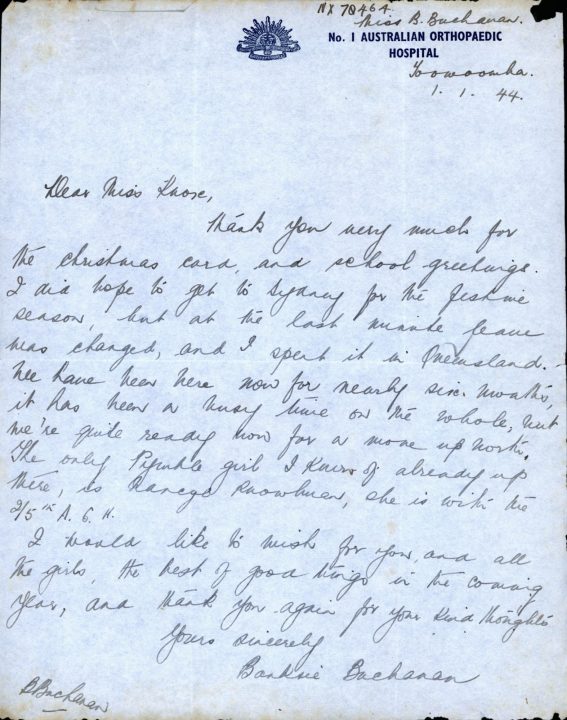 NX 70464
Miss B. Buchanan.
No. 1 AUSTRALIAN ORTHOPAEDIC
HOSPITAL
Toowoomba.
1. 1. 44.
Dear Miss Knox,
Thank you very much for
the christmas card, and school greetings.
I did hope to get to Sydney for the festive
season, but at the last minute leave
was changed, and I spent it in Queensland. -
We have been here now for nearly six months,
it has been a busy time on the whole, but
we're quite ready now for a move up north.
The only Pymble girl I know of already up
there, is Knowlman, she is with the
2/5th A. G. H.
I would like to wish for you, and all
the girls, the best of good things in the coming
year, and thank you again for your kind thoughts
Yours sincerely
Banksie Buchanan
B Buchanan